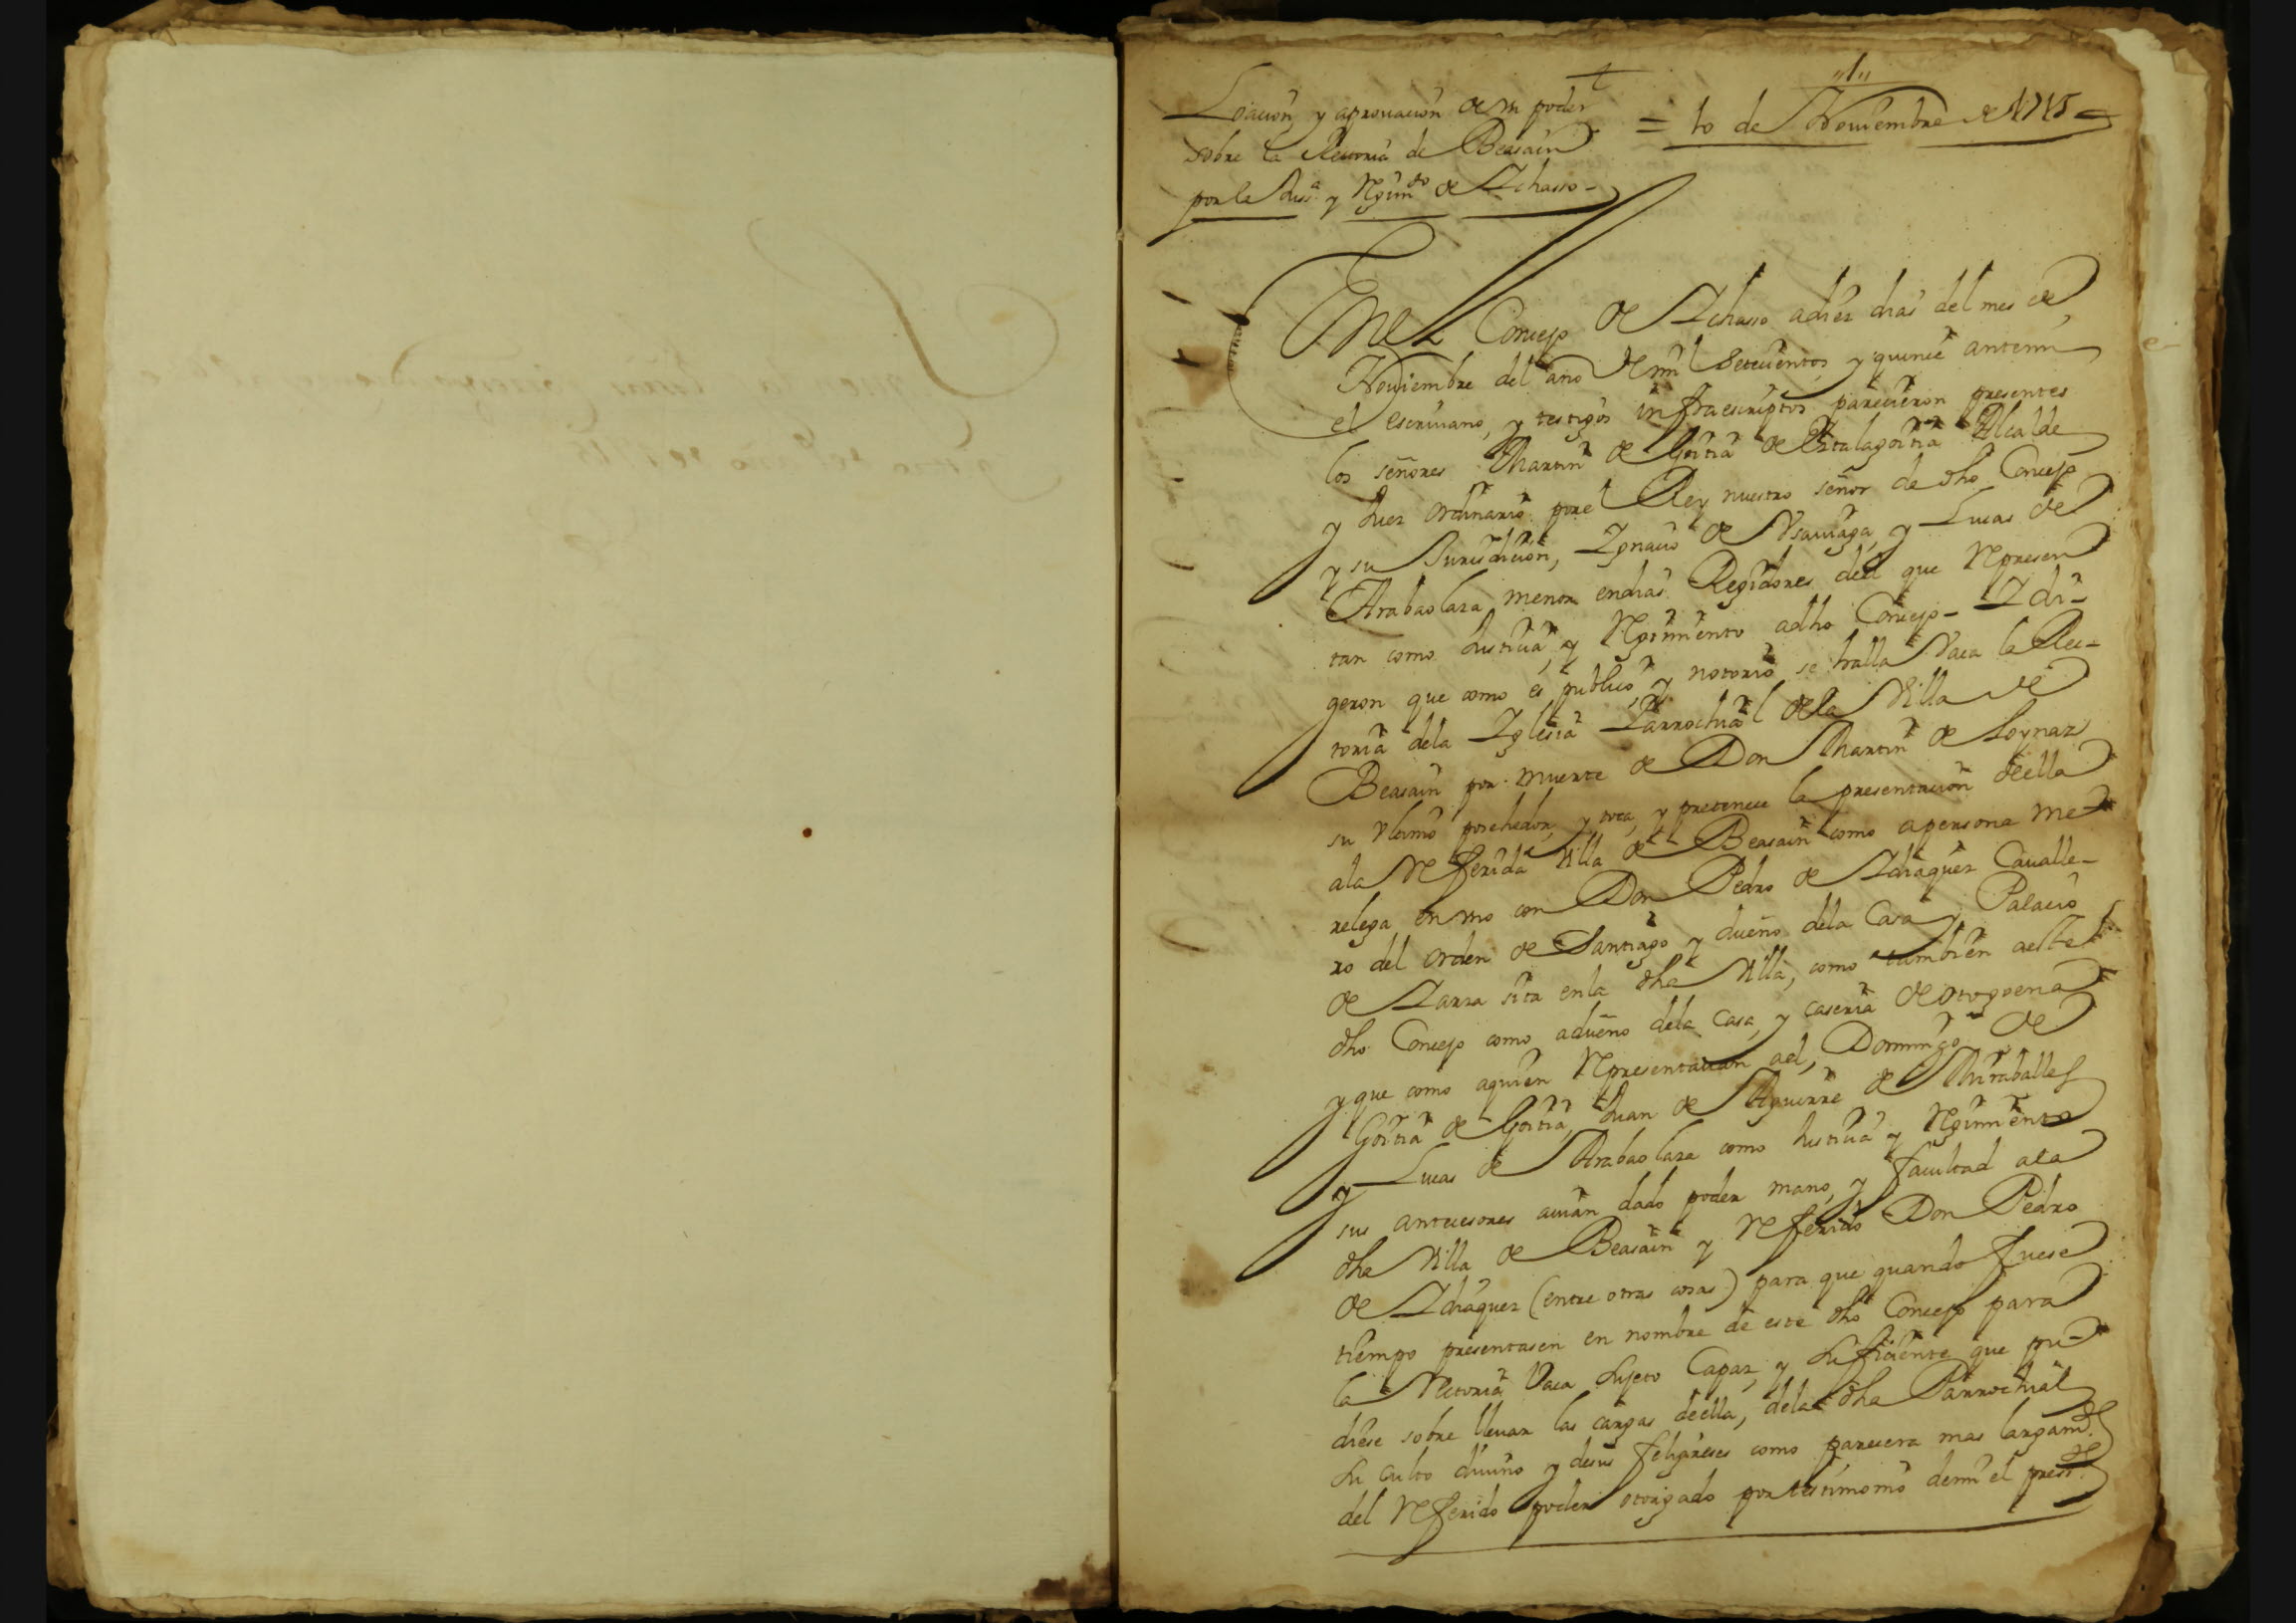 Loacion, y aprouacion de vn poder
sobre la Rectoria de Beasain
por la Jusª y Rgimto de Ichasso
= 10 de Nouiembre de 1715 =
En el Concejo de Ichasso a diez dias del mes de
Nouiembre del año de mil setecientos y quince antemi
el escriuano, y testigos infraescriptos parecieron presentes
los señores Martin de Goitia de Artalagoitia Alcalde
y Juez ordinario por el Rey nuestro señor de dho Concejo
y su Jurisdicion, Ignacio de Vsauiaga, y Lucas de
Arabaolaza menor en dias Regidores deel que Represen
tan como Justicia, y Regimiento a dho Concejo - I di-
geron que como es publico, y notorio se halla Vaca la Rec-
toria dela Iglesia Parrochial dela Villa de
Beasain por muerte de Don Martin de Loynaz
su vltimo posehedor, y toca, y pretenece la presentacion deella
ala Referida Villa de Beasain como a persona me
relega en vno con Don Pedro de Idiaquez Caualle-
ro del orden de Santiago y dueño dela Casa y Palacio
de Yarza sita enla dha Villa, como tambien a este
dho Concejo como a dueño dela Casa, y caseria de
y que como a quien Representauan ael, Domingo de
Goitia de Goitia, Juan de Aguirre de Miraballes
y Lucas de Arabaolaza como Justicia y Regimiento
sus antecesores auian dado poder mano, y facultad ala
dha Villa de Beasain y Referido Don Pedro
de Idiaquez (entre otras cosas) para que quando fuese
tiempo presentasen en nombre de este dho Concejo para
la Rectoria Vaca sujeto Capaz, y suficiente que pu
diese sobre lleuar las cargas deella, dela dha Parrochial
su culto diuino y desus feligreses como parecera mas largamte
del Referido poder otorgado por testimonio demi el presste